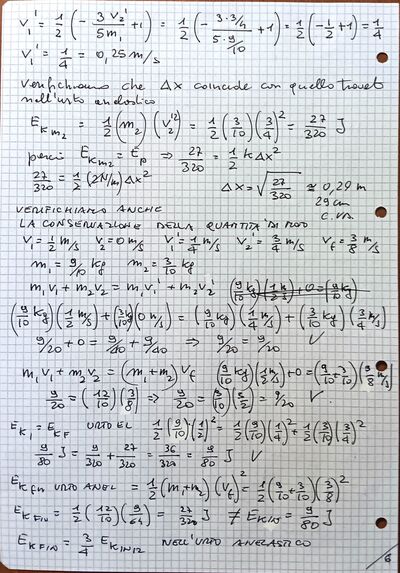 V₁' = 1/2 (- 3 V₂'/5m₁ + 1) = 1/2 (- 3·3/4 / 5·9/10 + 1) = 1/2 (-1/2 + 1) = 1/4
V₁' = 1/4 = 0,25 m/s
Verifichiamo che Δx coincide con quello trovato
nell'urto anelastico
E_Km₂ = 1/2 (m₂) (V₂'²) = 1/2 (3/10) (3/4)² = 27/320 J
perciò E_Km₂ = E_p ⇒ 27/320 = 1/2 k Δx²
27/320 = 1/2 (2N/m) Δx² Δx = √(27/320) ≅ 0,29 m
29 cm
c.v.d.
VERIFICHIAMO ANCHE
LA CONSERVAZIONE DELLA QUANTITA' DI MOTO
V₁ = 1/2 m/s V₂ = 0 m/s V₁' = 1/4 m/s V₂ = 3/4 m/s V_f = 3/8 m/s
m₁ = 9/10 kg m₂ = 3/10 kg
m₁V₁ + m₂V₂ = m₁V₁' + m₂V₂'
(9/10 kg) (1/2 m/s) + (3/10 kg) (0 m/s) = (9/10 kg) (1/4 m/s) + (3/10 kg) (3/4 m/s)
9/20 + 0 = 9/40 + 9/40 ⇒ 9/20 = 9/20 V
m₁V₁ + m₂V₂ = (m₁ + m₂) V_f (9/10 kg) (1/2 m/s) + 0 = (9/10 + 3/10) (3/8 m/s)
9/20 = (12/10) (3/8) ⇒ 9/20 = (3/10) (3/2) = 9/20 V
E_Ki = E_KF URTO EL 1/2 (9/10) (1/2)² = 1/2 (9/10) (1/4)² + 1/2 (3/10) (3/4)²
9/80 J = 9/320 + 27/320 = 36/320 = 9/80 J V
E_Kfin URTO ANEL = 1/2 (m₁ + m₂) (V_f)² = 1/2 (9/10 + 3/10) (3/8)²
E_KFIN = 1/2 (12/10) (9/64) = 27/320 J ≠ E_KIN = 9/80 J
E_KFIN = 3/4 E_KINIZ NELL'URTO ANELASTICO
6